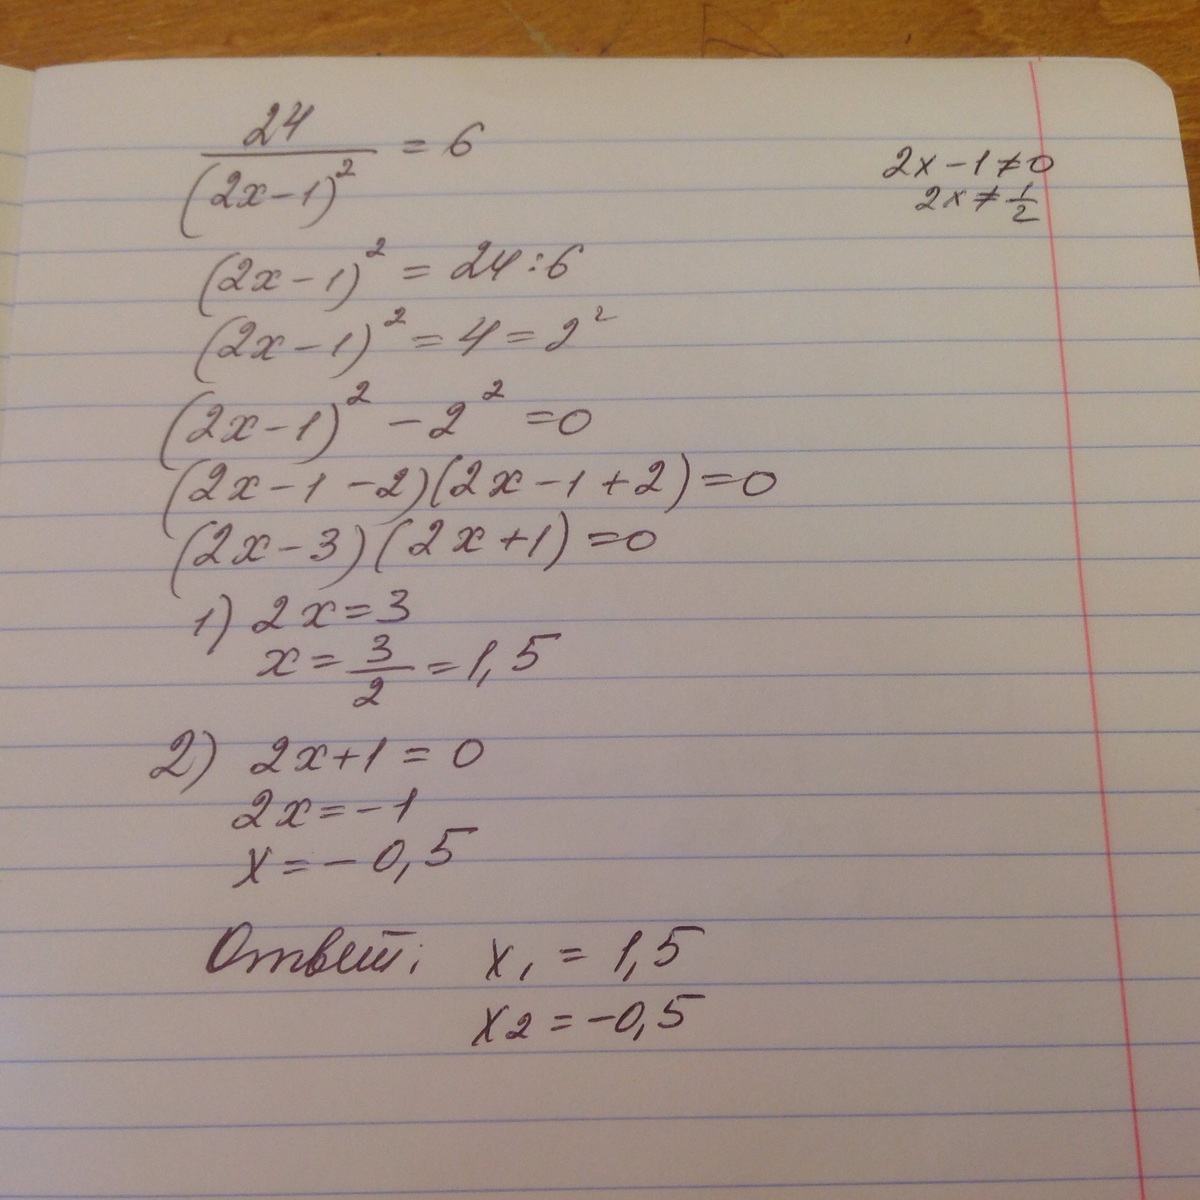 24/(2x-1)² = 6
2x-1≠0
2x≠1/2
(2x-1)² = 24:6
(2x-1)² = 4 = 2²
(2x-1)² - 2² = 0
(2x-1-2)(2x-1+2)=0
(2x-3)(2x+1)=0
1) 2x=3
x=3/2=1,5
2) 2x+1=0
2x=-1
x=-0,5
Ответ: x₁ = 1,5
x₂ = -0,5